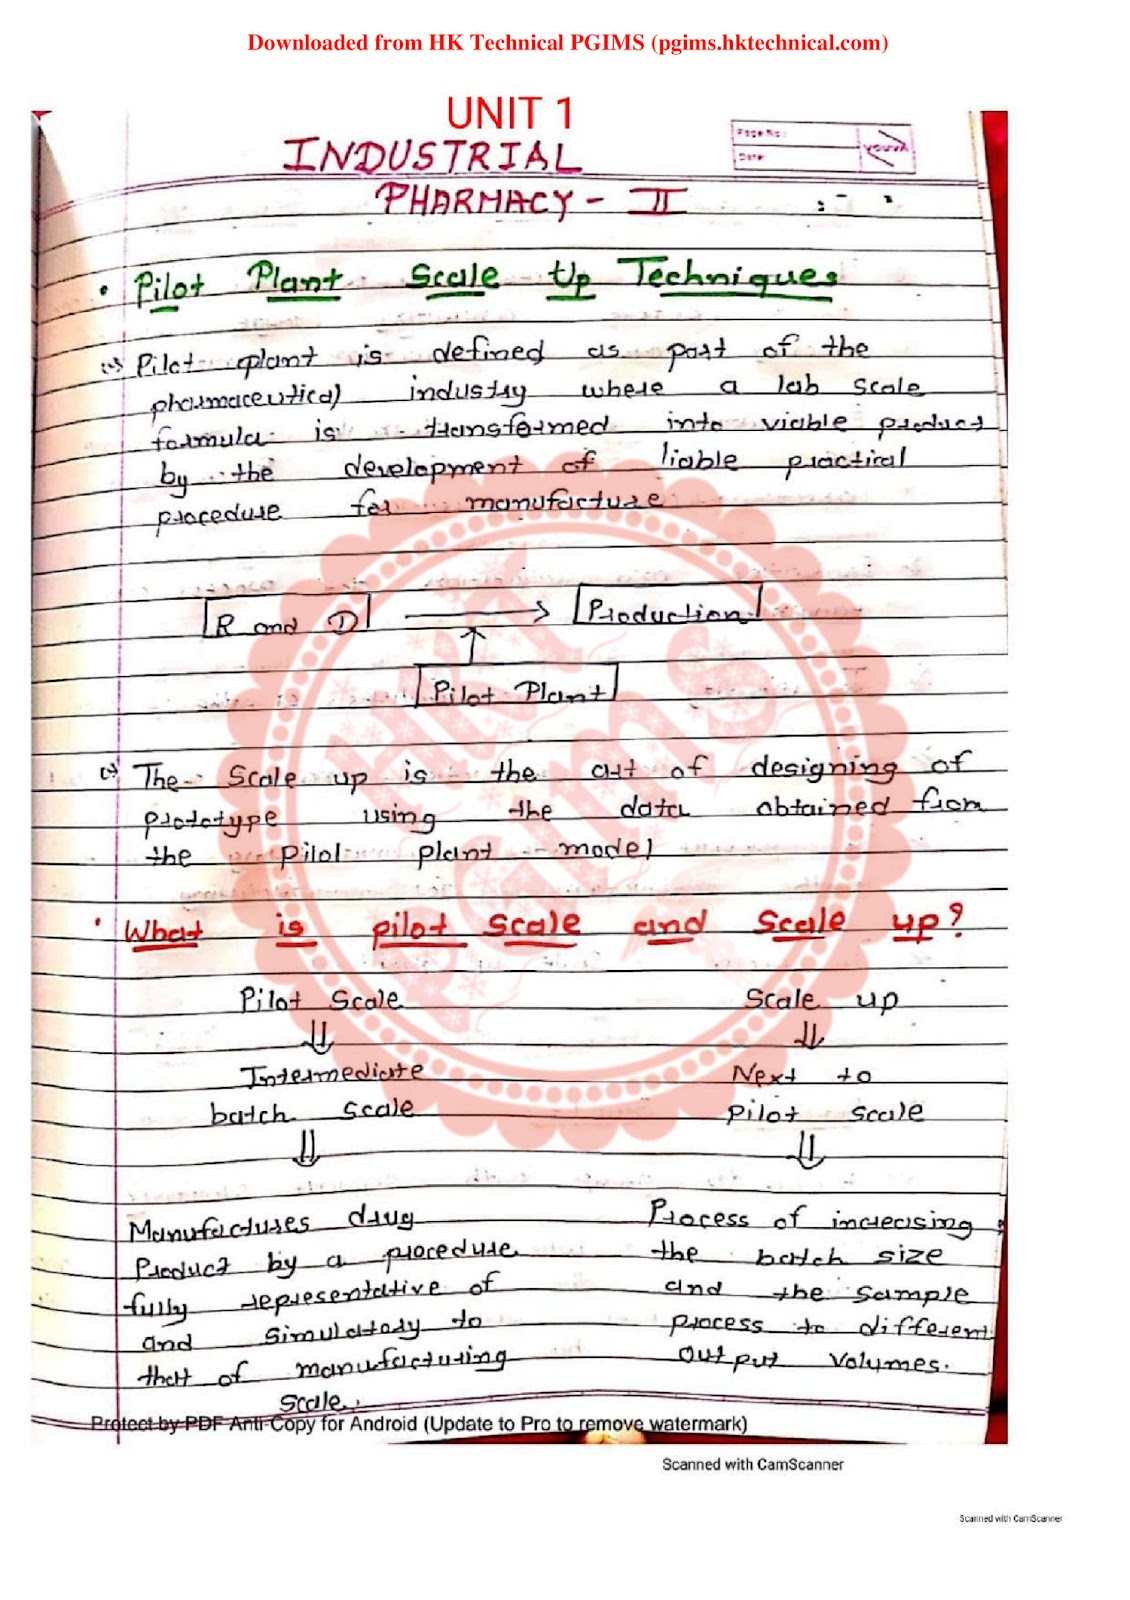 Downloaded from HK Technical PGIMS (pgims.hktechnical.com)
UNIT 1
Page No:
Date:
YOUVA
INDUSTRIAL
PHARMACY - II
• Pilot Plant Scale Up Techniques
Pilot plant is defined as part of the
pharmaceutical industry where a lab scale
formula is transformed into viable product
by the development of liable practical
procedure for manufacture
R and D → Production
↑
Pilot Plant
The Scale up is the art of designing of
prototype using the data obtained from
the pilot plant model
• What is pilot scale and Scale up?
Pilot Scale Scale up
⇓ ⇓
Intermediate Next to
batch scale pilot scale
⇓ ⇓
Manufactures drug Process of increasing
Product by a procedure the batch size
fully representative of and the sample
and simulatory to process to different
that of manufacturing output volumes.
scale.
HK
PGIMS
Protect by PDF Anti-Copy for Android (Update to Pro to remove watermark)
Scanned with CamScanner
Scanned with CamScanner